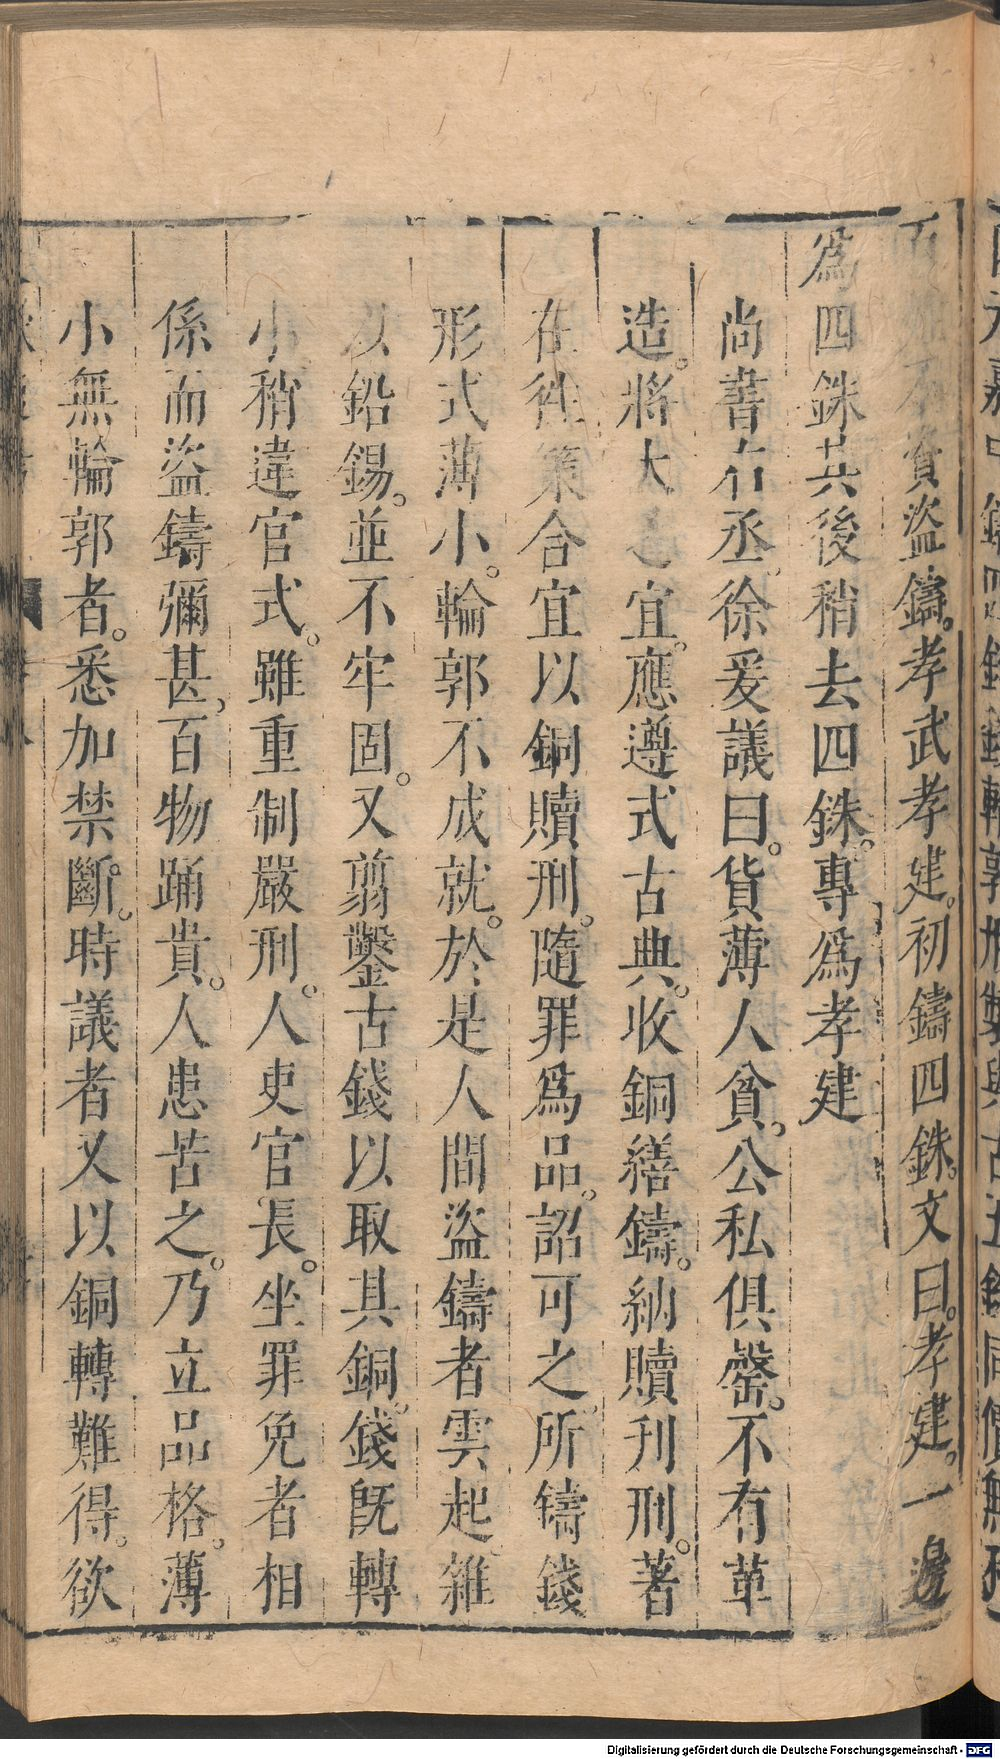 貧盜鑄。孝武孝建。初鑄四銖。文曰。孝建。一邊
爲四銖其後稍去四銖。專爲孝建
尚書右丞。徐爰議曰。貨薄人貧。公私俱罄。不有革
造。將大宜。應遵式古典。收銅繕鑄。納贖刊刑。著
在往策合宜以銅贖刑。隨罪爲品。詔可之。所鑄錢
形式薄小。輪郭不成就。於是人間盜鑄者雲起雜
以鉛錫。並不牢固。又翦鑿古錢以取其銅。錢旣轉
小稍違官式。雖重制嚴刑。人吏官長。坐罪免者相
係而盜鑄彌甚。百物踊貴。人患苦之。乃立品格。薄
小無輪郭者。悉加禁斷。時議者又以銅轉難得。欲
Digitalisierung gefördert durch die Deutsche Forschungsgemeinschaft - DFG